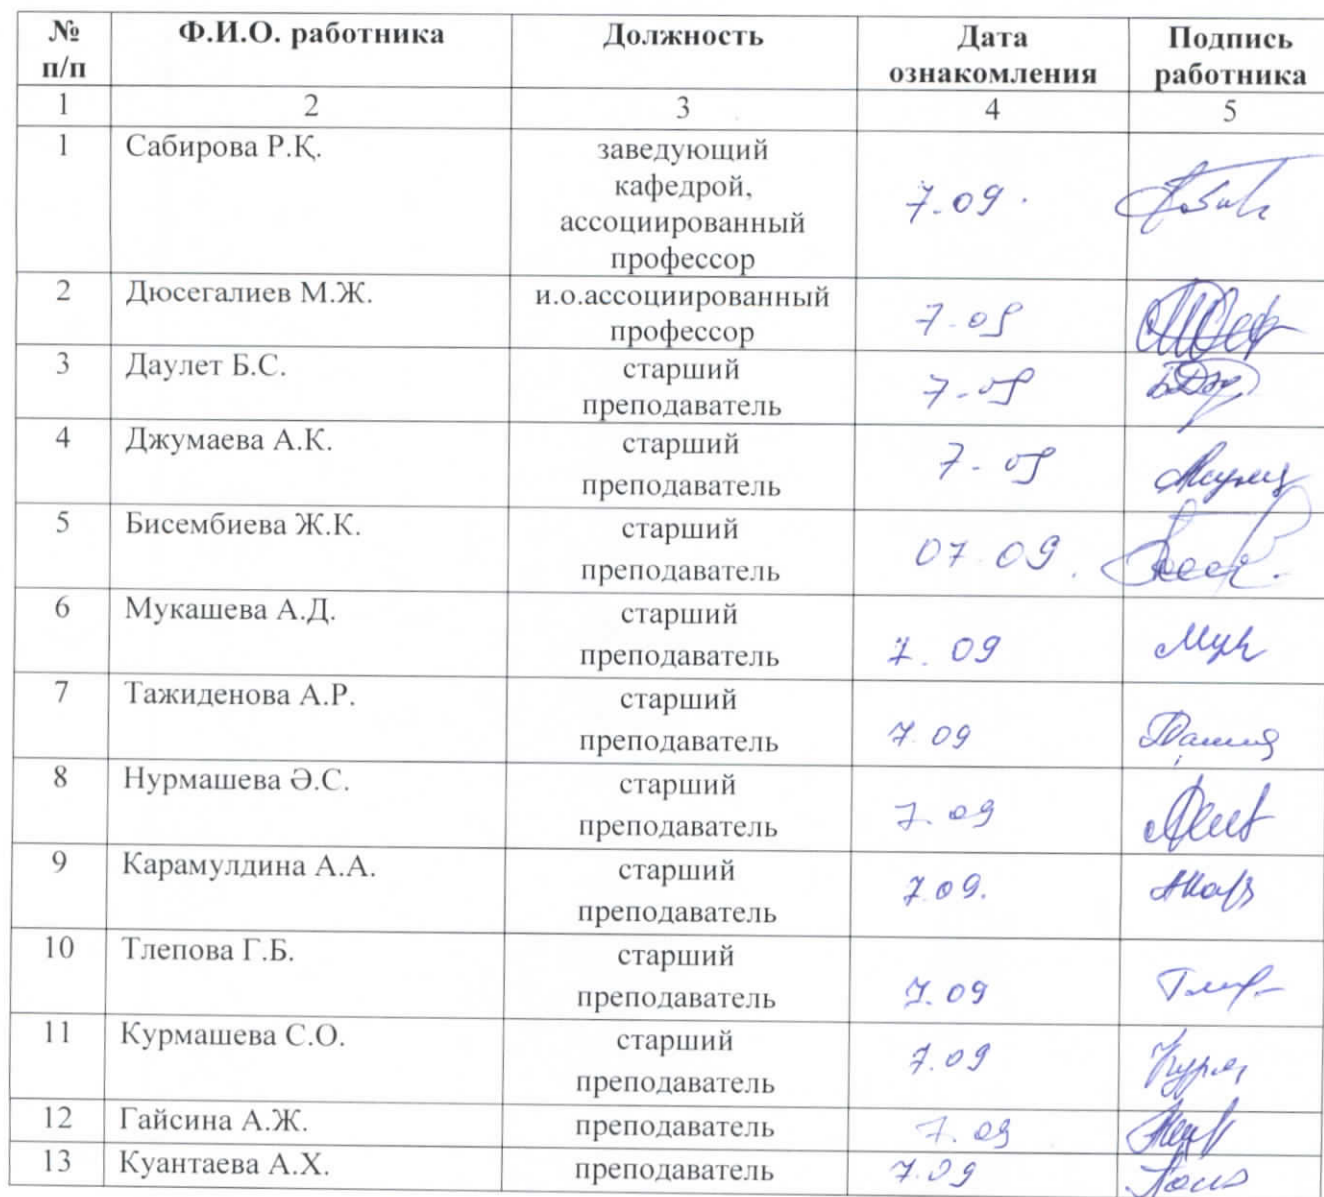 № п/п Ф.И.О. работника Должность Дата ознакомления Подпись работника
1 2 3 4 5
1 Сабирова Р.Қ. заведующий кафедрой, ассоциированный профессор 7.09.
2 Дюсегалиев М.Ж. и.о.ассоциированный профессор 7.09
3 Даулет Б.С. старший преподаватель 7.09
4 Джумаева А.К. старший преподаватель 7.09
5 Бисембиева Ж.К. старший преподаватель 07.09.
6 Мукашева А.Д. старший преподаватель 7.09
7 Тажиденова А.Р. старший преподаватель 7.09
8 Нурмашева Ә.С. старший преподаватель 7.09
9 Карамулдина А.А. старший преподаватель 7.09.
10 Тлепова Г.Б. старший преподаватель 7.09
11 Курмашева С.О. старший преподаватель 7.09
12 Гайсина А.Ж. преподаватель 7.09
13 Куантаева А.Х. преподаватель 7.09